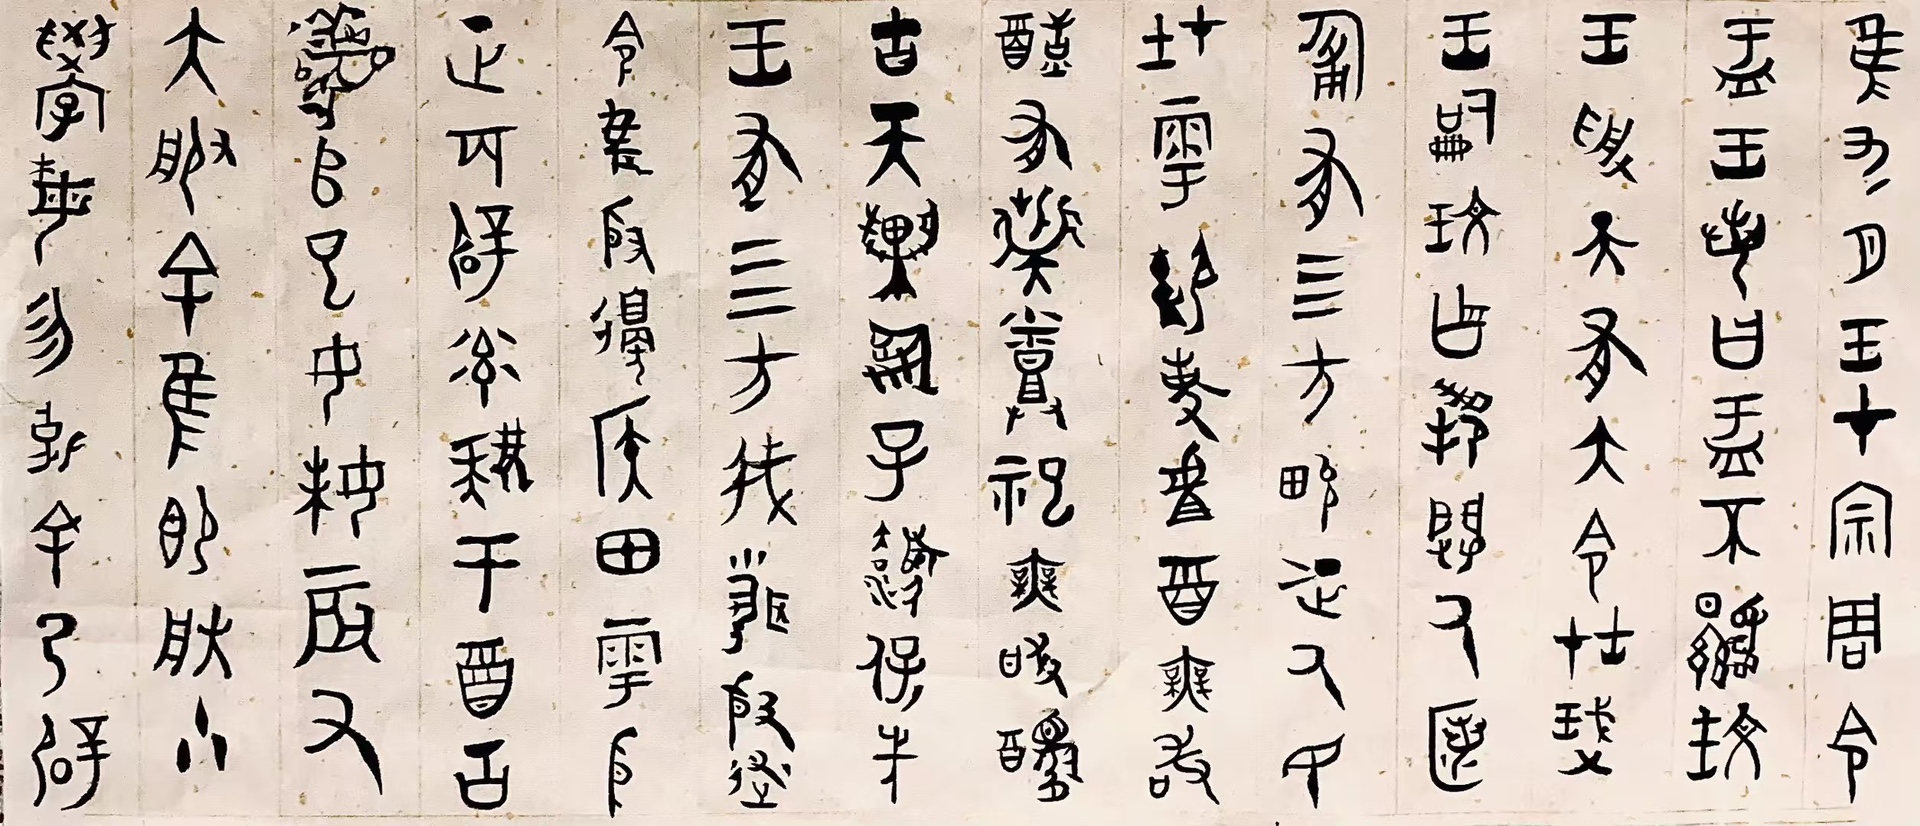 隹九月王才宗周令
盂王若曰盂不顯玟
王受天有大令在珷
王嗣玟乍邦闢氒匿
匍有四方畯正氒民
在雩御事䖒酉無敢
酖有祡蒸祀無敢醻
古天異臨子灋保先
王有四方我聞殷述
令隹殷邊侯田雩殷
正百辟率肄于酉古
喪師已女妹辰又
大服余隹即朕小
學女勿剋余乃辟